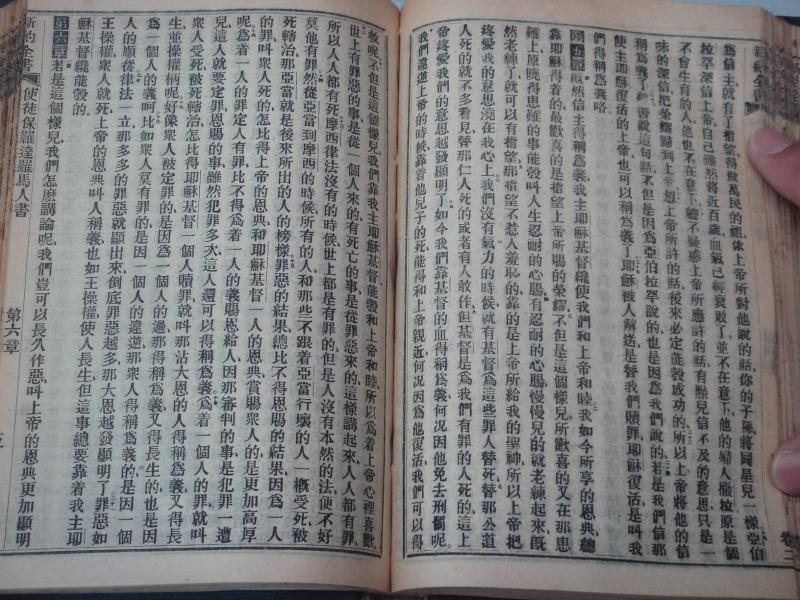 爲信主就有了指望得做萬民的祖依上帝所對他說的話你的子孫將同星兒一樣亞伯
拉罕深信上帝自己雖然將近百歲血氣已經衰敗了並不在意下他的婦人撒拉原是個
不會生育的人他也不在意下總不疑惑上帝所應許的話有點兒信不及的意思只是一
味的深信把榮耀歸到上帝想上帝所許的話後來必定能彀成功的所以上帝將他的信
稱爲義了經書說這句話不但是因爲亞伯拉罕說的也是因爲我們說的若是我們信那
使主耶穌復活的上帝也可以稱爲義了耶穌被人解送是替我們贖罪耶穌復活是叫我
們得稱爲義咯
第五章既然信主得稱爲義我主耶穌基督纔使我們和上帝和睦我如今所享的恩典總
靠耶穌得着的最歡喜的是指望上帝所賜的榮耀不但是這個樣兒所歡喜的又在那患
難上原曉得患難的事能彀叫人生忍耐的心腸有忍耐的心腸慢慢兒的就老練起來旣
然老練了就可以有指望那指望不惹人羞恥的靠的是上帝所給我的聖神所以上帝把
疼愛我的意思澆在我心上我們沒有氣力的時候就有基督是爲這些罪人替死替那公道
人死的就不多看見替那仁人死的或者有人敢作但基督是爲我們有罪的人死的這上
帝疼愛我們的意思越發顯明了如今我們靠基督的血得稱爲義何况因他免去刑罰呢
我們違逆上帝的時候靠着他兒子的死能得和上帝親近何况因爲他復活我們可以得
救呢不但是這個樣兒我們靠我主耶穌基督能彀和上帝和睦所以爲着上帝心裡喜歡
世上有罪惡的事是從一個人來的有死亡的事是從罪惡來的這樣講起來人人都有罪
所以人人都有死摩西律法沒有的時候世上都是有罪的但是人沒有本然的法便不好
算他有罪然從亞當到摩西的時候所有的人和那些不跟着亞當行壞的人一概受死被
死轄治那亞當就是後來所出的人的榜樣罪惡的結果總比不得恩賜的結果因爲一人
的罪叫衆人死的怎比得上帝的恩典和耶穌基督一人的恩典賞賜衆人的是更加高厚
呢爲着一人的罪定人有罪比不得爲着一人的義賜恩給人因那審判的事是犯罪一遭
兒這人就要定罪恩賜的事雖然犯罪多次這人還可以得稱爲義爲着一個人的罪就叫
衆人受死被死轄治怎比得耶穌基督一個人贖罪就叫那沾大恩的人得稱爲義又得長
生並操權柄呢好像衆人被定罪的是因爲一個人的過那得稱爲義又得長生的也是因
爲一個人的義呵比如衆人算有罪的是因一個人的違逆那衆人得稱爲義的是因一個
人的順從律法一立那多多的罪惡就顯出來倒底罪惡越多那大恩越發顯明了罪惡如
王操權衆人就死上帝的恩典叫人稱義也如王操權使人長生但這事總要靠着我主耶
穌基督纔能彀的
第六章若是這個樣兒我們怎麽講論呢我們豈可以長久作惡叫上帝的恩典更加顯明
新約全書
使徒保羅達羅馬人書
第六章